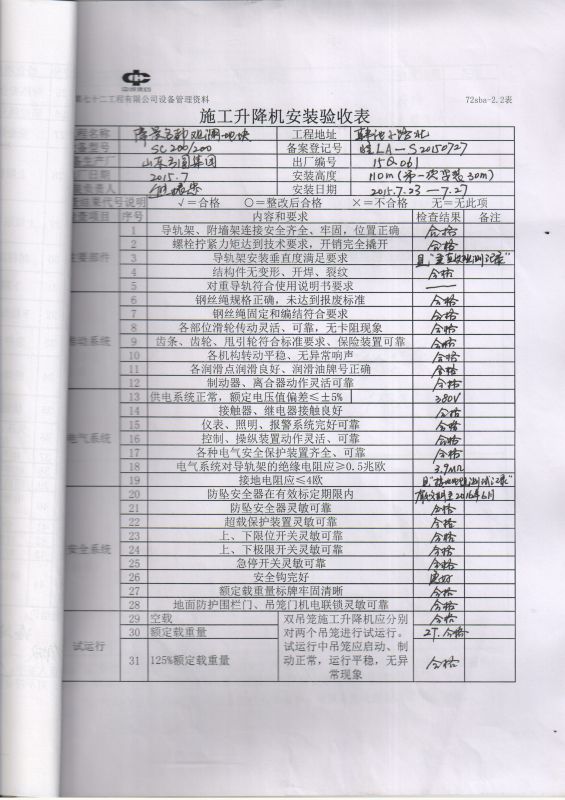 中煤集团
第七十二工程有限公司设备管理资料 72sba-2.2表
施工升降机安装验收表
程名称 观澜地块 工程地址
备型号 SC200/200 备案登记号 LA—S20150727
备生产厂 山东 集团 出厂编号 15Q061
厂日期 2015.7 安装高度 110m(第一次安装30m)
组负责人 安装日期 2015.7.23—7.27
查结果代号说明 √=合格 〇=整改后合格 ×=不合格 无=无此项
检查项目 序号 内容和要求 检查结果 备注
主要部件
1 导轨架、附墙架连接安全齐全、牢固，位置正确 合格
2 螺栓拧紧力矩达到技术要求，开销完全撬开 合格
3 导轨架安装垂直度满足要求 见"垂直度观测记录"
4 结构件无变形、开焊、裂纹 合格
5 对重导轨符合使用说明书要求 —
传动系统
6 钢丝绳规格正确，未达到报废标准 合格
7 钢丝绳固定和编结符合要求 合格
8 各部位滑轮传动灵活、可靠，无卡阻现象 合格
9 齿条、齿轮、甩引轮符合标准要求、保险装置可靠 合格
10 各机构转动平稳、无异常响声 合格
11 各润滑点润滑良好、润滑油牌号正确 合格
12 制动器、离合器动作灵活可靠 合格
电气系统
13 供电系统正常，额定电压值偏差≤±5% 380V
14 接触器、继电器接触良好 合格
15 仪表、照明、报警系统完好可靠 合格
16 控制、操纵装置动作灵活、可靠 合格
17 各种电气安全保护装置齐全、可靠 合格
18 电气系统对导轨架的绝缘电阻应≥0.5兆欧 3.9MΩ
19 接地电阻应≤4欧 见"接地电阻测试记录"
安全系统
20 防坠安全器在有效标定期限内 有效期至2016年6月
21 防坠安全器灵敏可靠 合格
22 超载保护装置灵敏可靠 合格
23 上、下限位开关灵敏可靠 合格
24 上、下极限开关灵敏可靠 合格
25 急停开关灵敏可靠 合格
26 安全钩完好 完好
27 额定载重量标牌牢固清晰 合格
28 地面防护围栏门、吊笼门机电联锁灵敏可靠 合格
试运行
29 空载 双吊笼施工升降机应分别 合格
30 额定载重量 对两个吊笼进行试运行。 2T.合格
试运行中吊笼应启动、制
31 125%额定载重量 动正常，运行平稳，无异 合格
常现象